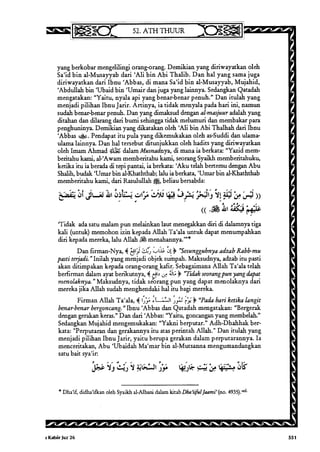 52. ATH THUUR
yang berkobar mengelilingi orang-orang. Demikian yang diriwayatkan oleh
Sa'id bin al-Musayyab dari 'Ali bin Abi Thalib. Dan hal yang sama juga
diriwayatkan dari Ibnu 'Abbas, di mana Sa'id bin al-Musayyab, Mujahid,
'Abdullah bin 'Ubaid bin 'Umair dan juga yang lainnya. Sedangkan Qatadah
mengatakan: "Yaitu, nyala api yang benar-benar penuh." Dan itulah yang
menjadi pilihan Ibnu Jarir. Artinya, ia tidak menyala pada hari ini, namun
sudah benar-benar penuh. Dan yang dimaksud dengan al-masjuur adalah yang
ditahan dan dilarang dari bumi sehingga tidak melumuri dan membakar para
penghuninya. Demikian yang dikatakan oleh 'Ali bin Abi Thalhah dari Ibnu
'Abbas. Pendapat itu pula yang dikemukakan oleh as-Suddi dan ulama-
ulama lainnya. Dan hal tersebut ditunjukkan oleh hadits yang diriwayatkan
oleh Imam Ahmad dalam Musnadnya, di mana ia berkata: "Yazid mem-
beritahu kami, al-'Awam memberitahu kami, seorang Syaikh memberitahuku,
ketika itu ia berada di tepi pantai, ia berkata: 'Aku telah bertemu dengan Abu
Shalih, budak 'Umar bin al-Khaththab; lalu ia berkata, 'Umar bin al-Khaththab
memberitahu kami, dari Rasulullah ﷺ, beliau bersabda:
'Tidak ada satu malam pun melainkan laut menegakkan diri di dalamnya tiga
kali (untuk) memohon izin kepada Allah Ta'ala untuk dapat menumpahkan
diri kepada mereka, lalu Allah menahannya.'"*
Dan firman-Nya, "Sesungguhnya adzab Rabb-mu
pasti terjadi." Inilah yang menjadi objek sumpah. Maksudnya, adzab itu pasti
akan ditimpakan kepada orang-orang kafir. Sebagaimana Allah Ta'ala telah
berfirman dalam ayat berikutnya, ﴾ مَا لَهُ مِن دَافِعٍ ﴿ "Tidak seorang pun yang dapat
menolaknya." Maksudnya, tidak seorang pun yang dapat menolaknya dari
mereka jika Allah sudah menghendaki hal itu bagi mereka.
Firman Allah Ta'ala, ﴾ يَوْمَ تَمُورُ السَّمَاءُ مَوْرًا ﴿ "Pada hari ketika langit
benar-benar bergoncang." Ibnu 'Abbas dan Qatadah mengatakan: "Bergerak
dengan gerakan keras." Dan dari 'Abbas: "Yaitu, goncangan yang membelah."
Sedangkan Mujahid mengemukakan: "Yakni berputar." Adh-Dhahhak ber-
kata: "Perputaran dan gerakannya itu atas perintah Allah." Dan itulah yang
menjadi pilihan Ibnu Jarir, yaitu berupa gerakan dalam perputarannya. Ia
menceritakan, Abu 'Ubaidah Ma'mar bin al-Mutsanna mengumandangkan
satu bait sya'ir:
* Dha'if, didha'ifkan oleh Syaikh al-Albani dalam kitab Dha'iiful Jaami' (no. 4935).
r Katsir Juz 26
551